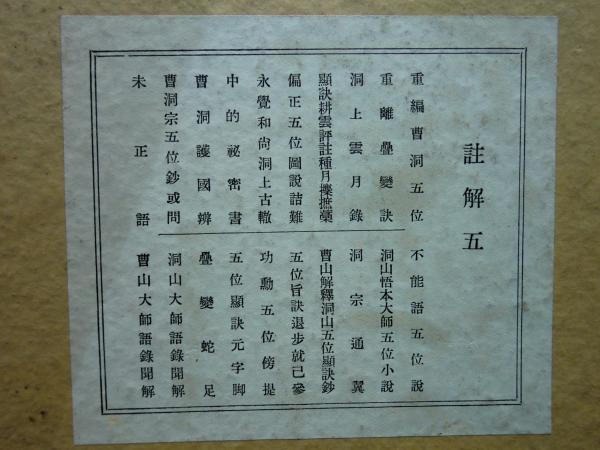 註解五
重編曹洞五位
重離疊變訣
洞上雲月錄
顯訣耕雲評註種月攈摭藁
偏正五位圖說詰難
永覺和尙洞上古轍
中的祕密書
曹洞護國辨
曹洞宗五位鈔或問
未正語
不能語五位說
洞山悟本大師五位小說
洞宗通翼
曹山解釋洞山五位顯訣鈔
五位旨訣退步就己參
功勳五位傍提
五位顯訣元字脚
疊變蛇足
洞山大師語錄聞解
曹山大師語錄聞解